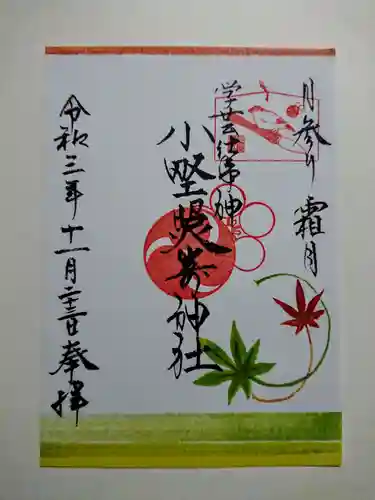 月参り 霜月
学芸仕事神
小野照崎神社
令和三年十一月二十三日奉拝